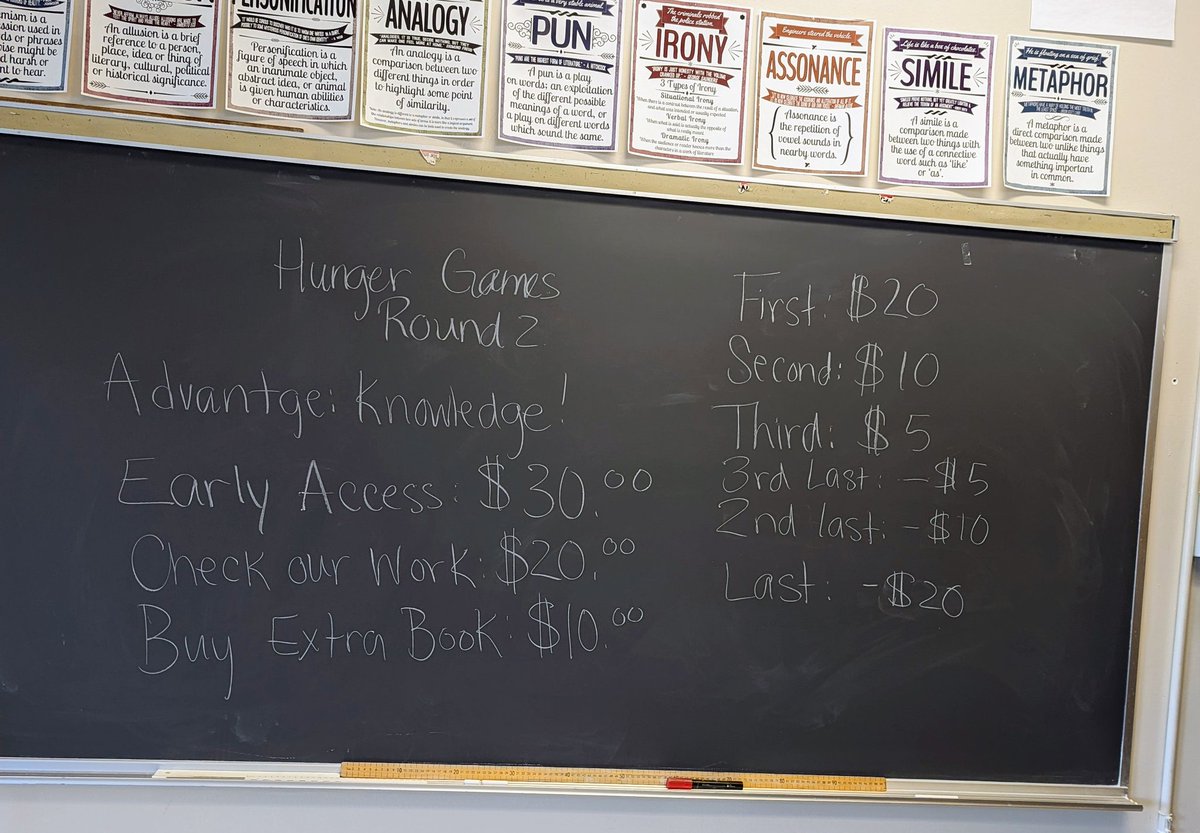 nism is a
sion used in
ds or phrases
wise might be
d harsh or
nt to hear.
An allusion is a brief
reference to a person,
place, idea or thing of
literary, cultural, political
or historical significance.
PERSONIFICATION
Personification is a
figure of speech in which
an inanimate object,
abstract idea, or animal
is given human abilities
or characteristics.
ANALOGY
An analogy is a
comparison between two
different things in order
to highlight some point
of similarity.
PUN
A pun is a play on
words: an exploitation
of the different possible
meanings of a word, or
a play on different words
which sound the same.
The criminals robbed
the police station.
IRONY
3 Types of Irony
Situational Irony
Verbal Irony
Dramatic Irony
Engineers steered the vehicle.
ASSONANCE
Assonance is
the repetition of
vowel sounds in
nearby words.
Life is like a box of chocolates.
SIMILE
A simile is a
comparison made
between two things with
the use of a connective
word such as 'like'
or 'as'.
He is floating on a sea of grief.
METAPHOR
A metaphor is a
direct comparison made
between two unlike things
that actually have
something important
in common.
Hunger Games
Round 2
Advantge: Knowledge!
Early Access: $30.00
Check our Work: $20.00
Buy Extra Book: $10.00
First: $20
Second: $10
Third: $5
3rd Last: -$5
2nd last: -$10
Last: -$20